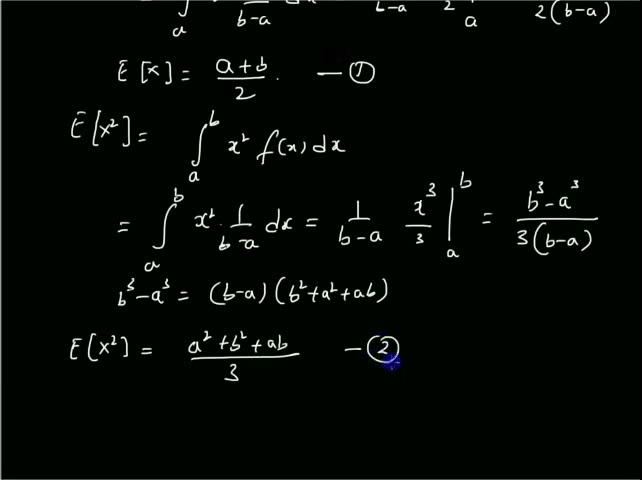 ∫ₐ b-a b-a 2 a 2(b-a)
E[x] = (a+b)/2. — ①
E[x²] = ∫ₐᵇ x² f(x) dx
= ∫ₐᵇ x² · 1/(b-a) dx = 1/(b-a) x³/3 |ₐᵇ = (b³-a³)/(3(b-a))
b³-a³ = (b-a)(b²+a²+ab)
E[x²] = (a²+b²+ab)/3 — ②